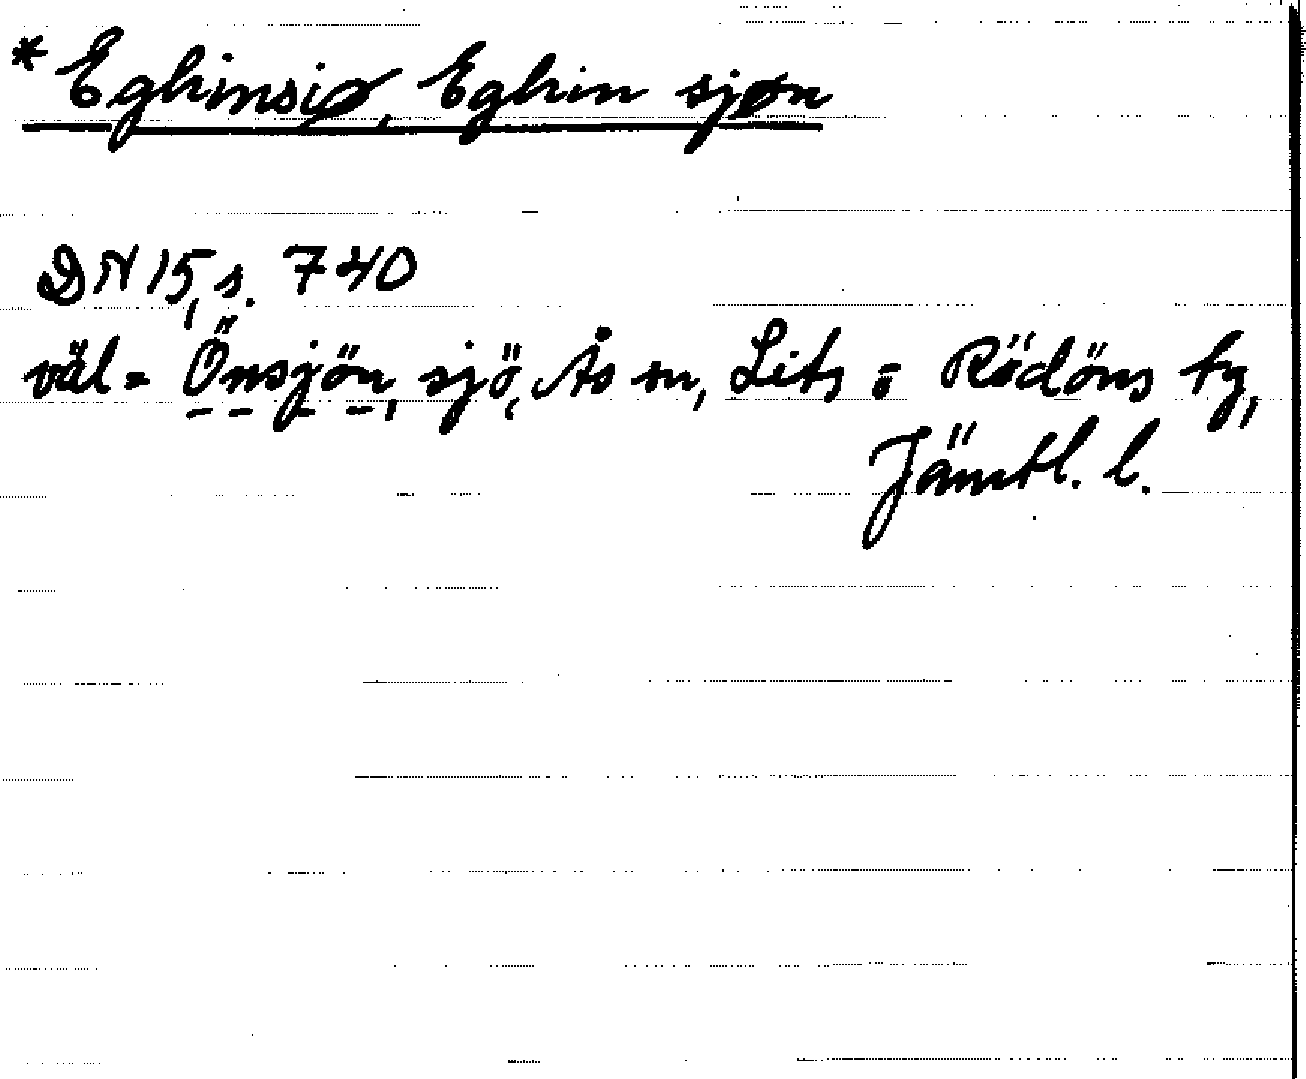 * Eghinsiø, Eghin sjøn
DN 15, s. 740
väl = Önsjön, sjö, Ås sn, Lits o Rödöns tg,
Jämtl. l.